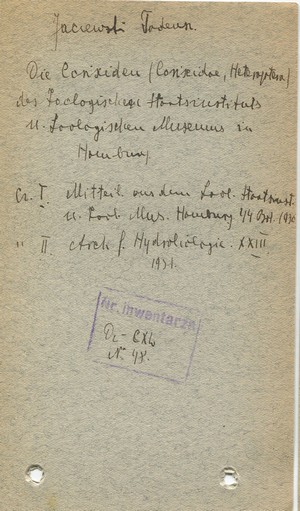 Jaczewski Tadeusz.
Die Corixiden (Corixidae, Heteroptera)
des Zoologischen Staatsinstituts
u. Zoologischen Museums in
Hamburg
Cz. I. Mitteil. aus dem Zool. Staatsinst.
u. Zool. Mus. Hamburg 44
" II. Arch. f. Hydrobiologie. XXIII.
1931.
Nr. inwentarza
Dz-CXL
N. 48.